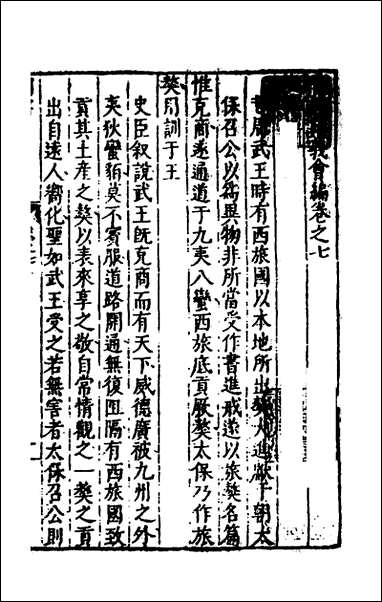 義會編卷之七
昔周武王時有西旅國以本地所出獒犬進獻于朝太
保召公以為異物非所當受作書進戒遂以旅獒名篇
惟克商遂通道于九夷八蠻西旅底貢厥獒太保乃作旅
獒用訓于王
史臣叙說武王既克商而有天下威德廣被九州之外
夷狄蠻貊莫不賓服道路開通無復阻隔有西旅國致
貢其土產之獒以表來享之敬自常情觀之一獒之貢
出自遠人嚮化聖如武王受之若無害者太保召公則